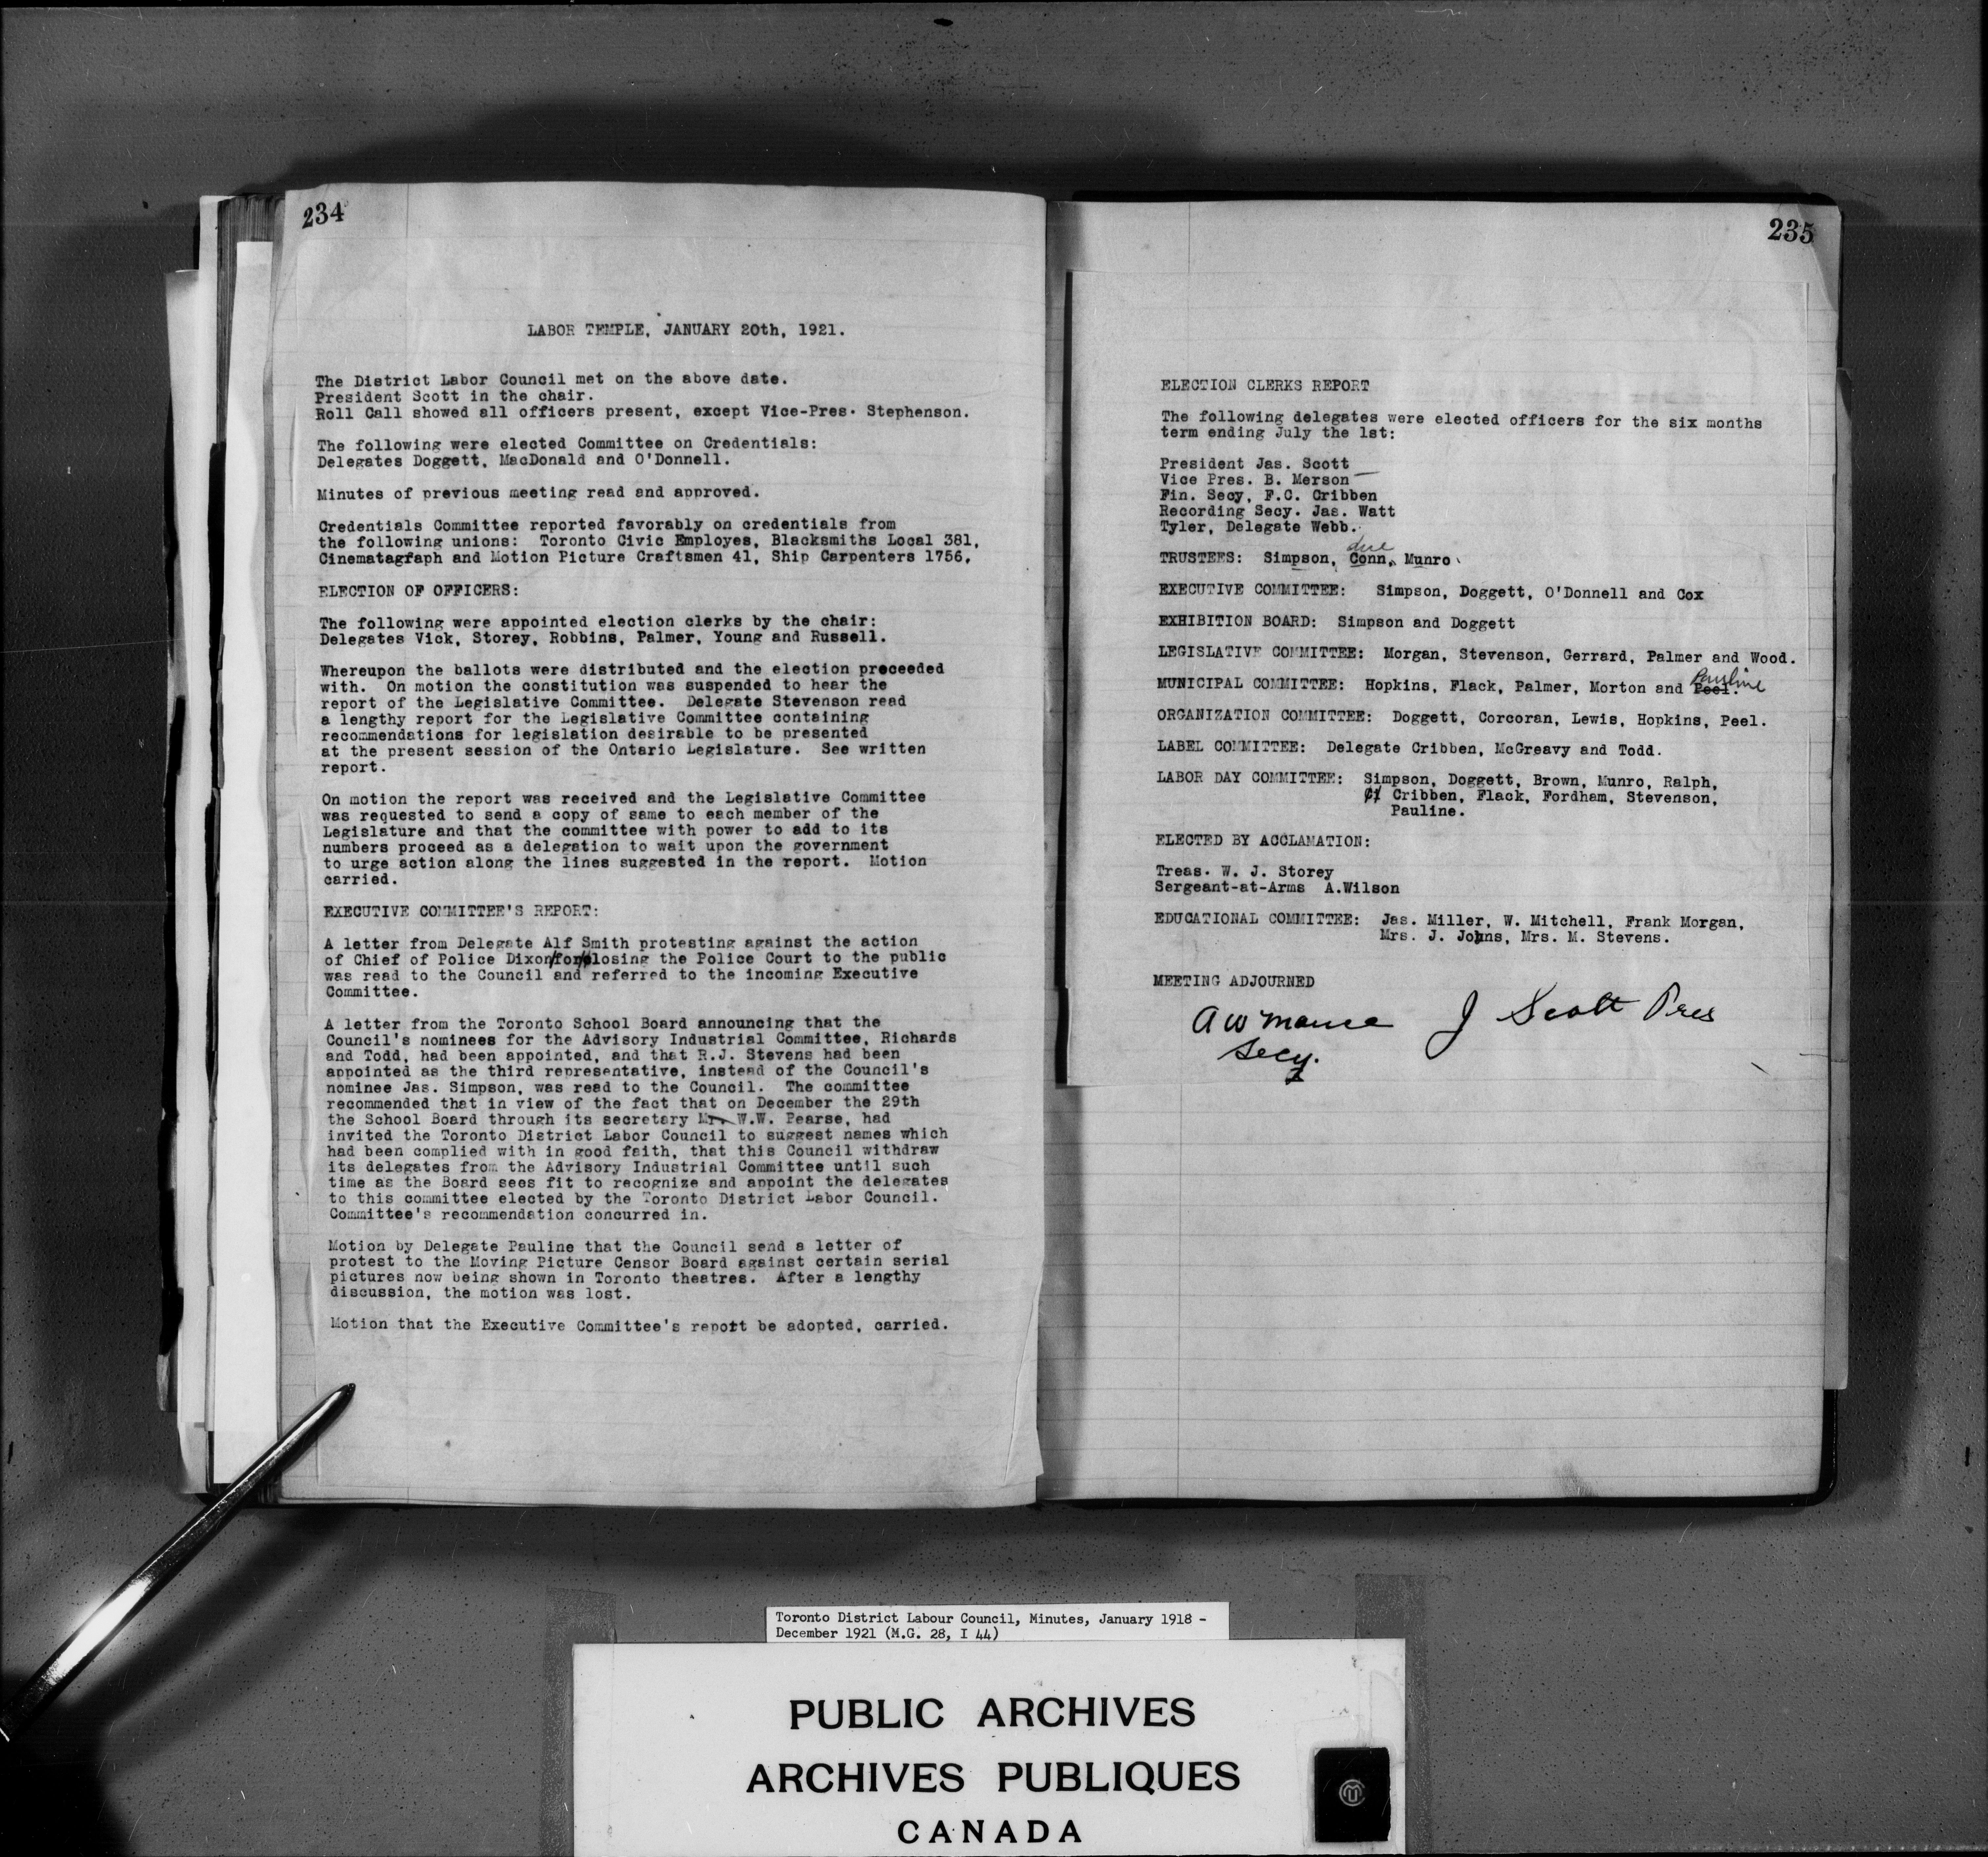 234
LABOR TEMPLE, JANUARY 20th, 1921.
The District Labor Council met on the above date.
President Scott in the chair.
Roll Call showed all officers present, except Vice-Pres. Stephenson.
The following were elected Committee on Credentials:
Delegates Doggett, MacDonald and O'Donnell.
Minutes of previous meeting read and approved.
Credentials Committee reported favorably on credentials from
the following unions: Toronto Civic Employes, Blacksmiths Local 381,
Cinematagraph and Motion Picture Craftsmen 41, Ship Carpenters 1756,
ELECTION OF OFFICERS:
The following were appointed election clerks by the chair:
Delegates Vick, Storey, Robbins, Palmer, Young and Russell.
Whereupon the ballots were distributed and the election proceeded
with. On motion the constitution was suspended to hear the
report of the Legislative Committee. Delegate Stevenson read
a lengthy report for the Legislative Committee containing
recommendations for legislation desirable to be presented
at the present session of the Ontario Legislature. See written
report.
On motion the report was received and the Legislative Committee
was requested to send a copy of same to each member of the
Legislature and that the committee with power to add to its
numbers proceed as a delegation to wait upon the government
to urge action along the lines suggested in the report. Motion
carried.
EXECUTIVE COMMITTEE'S REPORT:
A letter from Delegate Alf Smith protesting against the action
of Chief of Police Dixon/for/closing the Police Court to the public
was read to the Council and referred to the incoming Executive
Committee.
A letter from the Toronto School Board announcing that the
Council's nominees for the Advisory Industrial Committee, Richards
and Todd, had been appointed, and that R.J. Stevens had been
appointed as the third representative, instead of the Council's
nominee Jas. Simpson, was read to the Council. The committee
recommended that in view of the fact that on December the 29th
the School Board through its secretary Mr. W.W. Pearse, had
invited the Toronto District Labor Council to suggest names which
had been complied with in good faith, that this Council withdraw
its delegates from the Advisory Industrial Committee until such
time as the Board sees fit to recognize and appoint the delegates
to this committee elected by the Toronto District Labor Council.
Committee's recommendation concurred in.
Motion by Delegate Pauline that the Council send a letter of
protest to the Moving Picture Censor Board against certain serial
pictures now being shown in Toronto theatres. After a lengthy
discussion, the motion was lost.
Motion that the Executive Committee's report be adopted, carried.
235
ELECTION CLERKS REPORT
The following delegates were elected officers for the six months
term ending July the 1st:
President Jas. Scott
Vice Pres. B. Merson
Fin. Secy, F.C. Cribben
Recording Secy. Jas. Watt
Tyler, Delegate Webb.
TRUSTEES: Simpson, Conn, Munro
EXECUTIVE COMMITTEE: Simpson, Doggett, O'Donnell and Cox
EXHIBITION BOARD: Simpson and Doggett
LEGISLATIVE COMMITTEE: Morgan, Stevenson, Gerrard, Palmer and Wood.
Pauline
MUNICIPAL COMMITTEE: Hopkins, Flack, Palmer, Morton and Peel.
ORGANIZATION COMMITTEE: Doggett, Corcoran, Lewis, Hopkins, Peel.
LABEL COMMITTEE: Delegate Cribben, McGreavy and Todd.
LABOR DAY COMMITTEE: Simpson, Doggett, Brown, Munro, Ralph,
Cribben, Flack, Fordham, Stevenson,
Pauline.
ELECTED BY ACCLAMATION:
Treas. W. J. Storey
Sergeant-at-Arms A.Wilson
EDUCATIONAL COMMITTEE: Jas. Miller, W. Mitchell, Frank Morgan,
Mrs. J. Johns, Mrs. M. Stevens.
MEETING ADJOURNED
J Scott Pres
Secy.
Toronto District Labour Council, Minutes, January 1918 -
December 1921 (M.G. 28, I 44)
PUBLIC ARCHIVES
ARCHIVES PUBLIQUES
CANADA